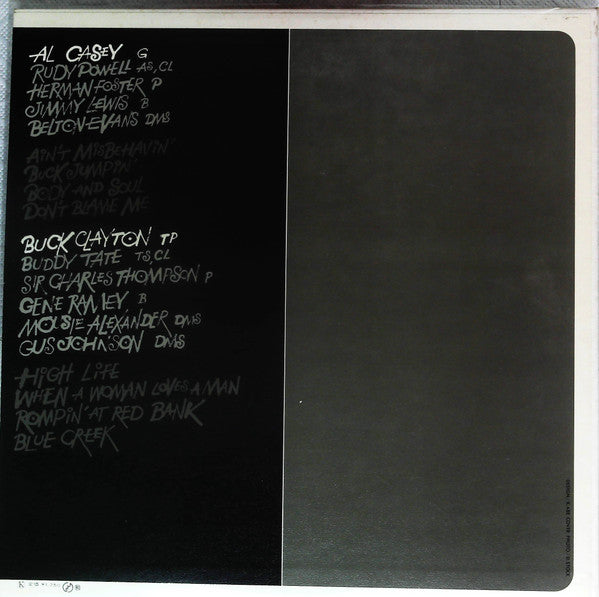 AL CASEY G
RUDY POWELL AS, CL
HERMAN FOSTER P
JIMMY LEWIS B
BELTON EVANS DMS
AIN'T MISBEHAVIN'
BUCK JUMPIN'
BODY AND SOUL
DON'T BLAME ME
BUCK CLAYTON TP
BUDDY TATE TS, CL
SIR CHARLES THOMPSON P
GENE RAMEY B
MOUSIE ALEXANDER DMS
GUS JOHNSON DMS
HIGH LIFE
WHEN A WOMAN LOVES A MAN
ROMPIN' AT RED BANK
BLUE CREEK
DESIGN: K. ABE COVER PHOTO:
K